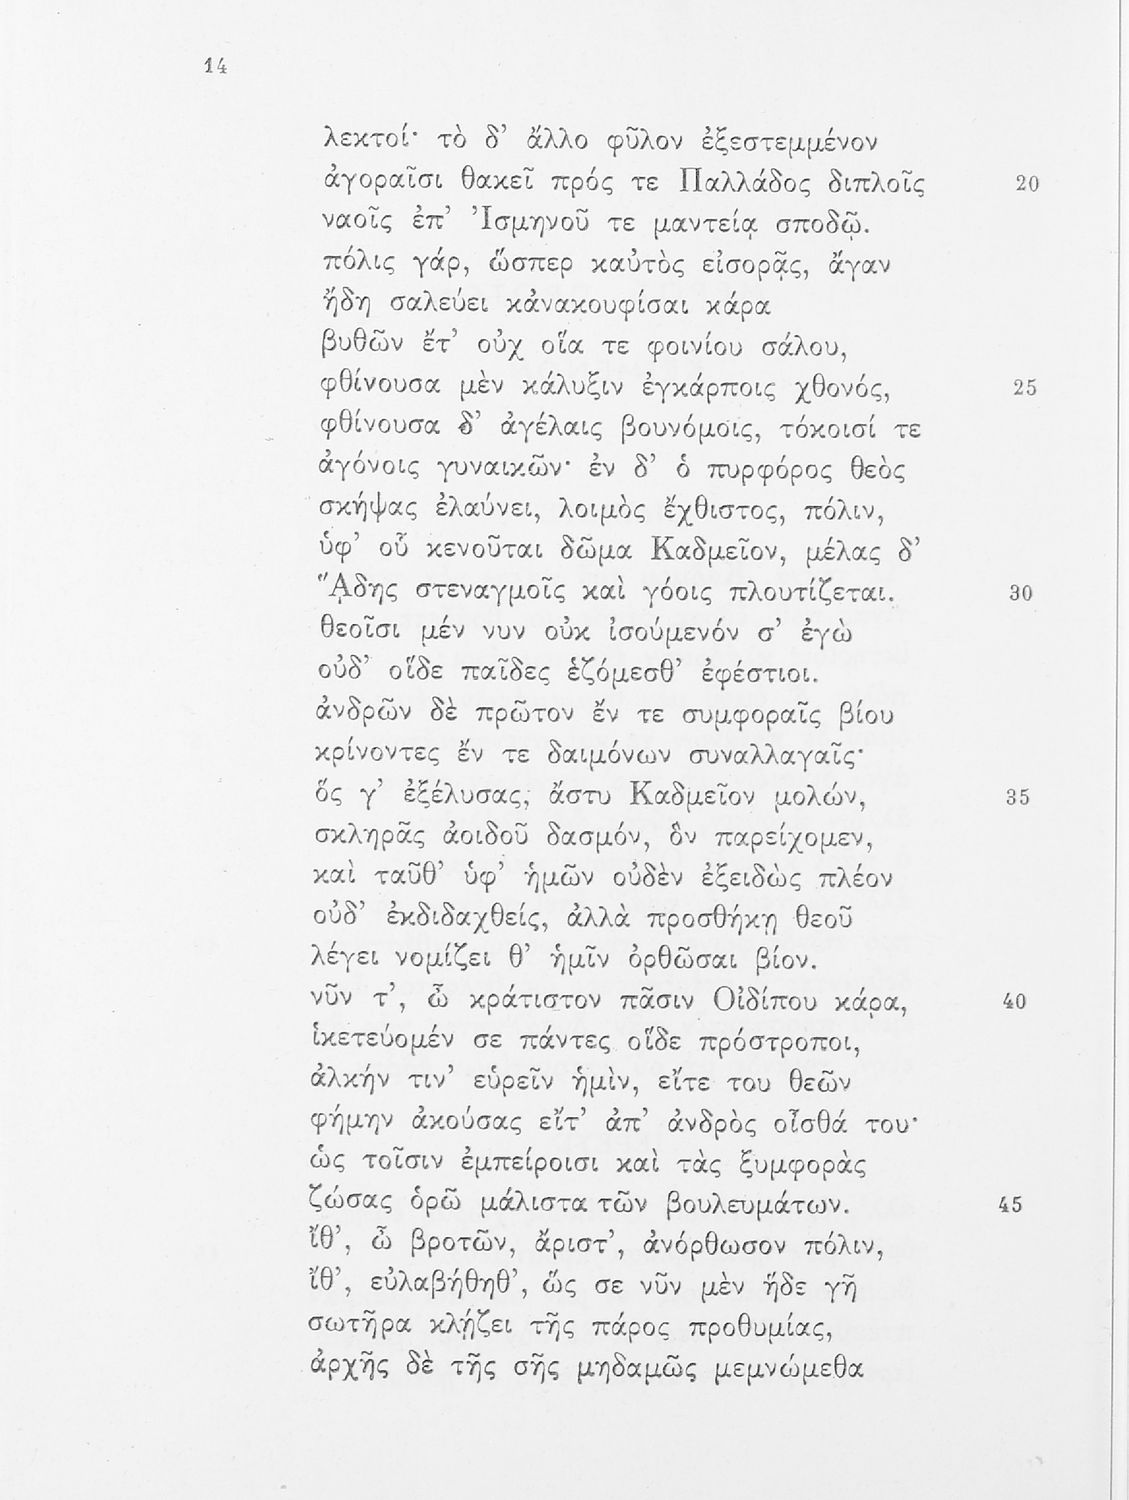 14
λεκτοί· τὸ δ’ ἄλλο φῦλον ἐξεστεμμένον
ἀγοραῖσι θακεῖ πρός τε Παλλάδος διπλοῖς 20
ναοῖς ἐπ’ Ἰσμηνοῦ τε μαντείᾳ σποδῷ.
πόλις γάρ, ὥσπερ καὐτὸς εἰσορᾷς, ἄγαν
ἤδη σαλεύει κἀνακουφίσαι κάρα
βυθῶν ἔτ’ οὐχ οἵα τε φοινίου σάλου,
φθίνουσα μὲν κάλυξιν ἐγκάρποις χθονός, 25
φθίνουσα δ’ ἀγέλαις βουνόμοις, τόκοισί τε
ἀγόνοις γυναικῶν· ἐν δ’ ὁ πυρφόρος θεὸς
σκήψας ἐλαύνει, λοιμὸς ἔχθιστος, πόλιν,
ὑφ’ οὗ κενοῦται δῶμα Καδμεῖον, μέλας δ’
Ἅιδης στεναγμοῖς καὶ γόοις πλουτίζεται. 30
θεοῖσι μέν νυν οὐκ ἰσούμενόν σ’ ἐγὼ
οὐδ’ οἵδε παῖδες ἑζόμεσθ’ ἐφέστιοι.
ἀνδρῶν δὲ πρῶτον ἔν τε συμφοραῖς βίου
κρίνοντες ἔν τε δαιμόνων συναλλαγαῖς·
ὅς γ’ ἐξέλυσας, ἄστυ Καδμεῖον μολών, 35
σκληρᾶς ἀοιδοῦ δασμόν, ὃν παρείχομεν,
καὶ ταῦθ’ ὑφ’ ἡμῶν οὐδὲν ἐξειδὼς πλέον
οὐδ’ ἐκδιδαχθείς, ἀλλὰ προσθήκῃ θεοῦ
λέγει νομίζει θ’ ἡμῖν ὀρθῶσαι βίον.
νῦν τ’, ὦ κράτιστον πᾶσιν Οἰδίπου κάρα, 40
ἱκετεύομέν σε πάντες οἵδε πρόστροποι,
ἀλκήν τιν’ εὑρεῖν ἡμὶν, εἴτε του θεῶν
φήμην ἀκούσας εἴτ’ ἀπ’ ἀνδρὸς οἶσθά του·
ὡς τοῖσιν ἐμπείροισι καὶ τὰς ξυμφορὰς
ζώσας ὁρῶ μάλιστα τῶν βουλευμάτων. 45
ἴθ’, ὦ βροτῶν, ἄριστ’, ἀνόρθωσον πόλιν,
ἴθ’, εὐλαβήθηθ’, ὥς σε νῦν μὲν ἥδε γῆ
σωτῆρα κλῄζει τῆς πάρος προθυμίας,
ἀρχῆς δὲ τῆς σῆς μηδαμῶς μεμνώμεθα